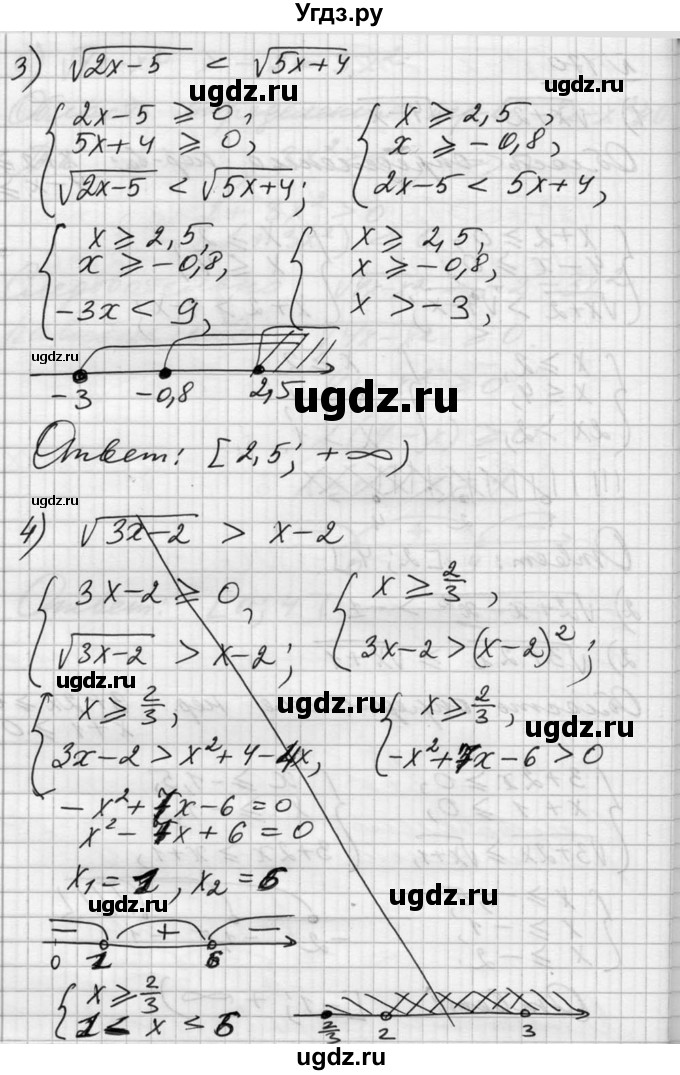 Угдз.ру
3) √(2x-5) < √(5x+4)
ugdz.ru ugdz.ru
{ 2x-5 ⩾ 0, { x ⩾ 2,5,
5x+4 ⩾ 0, x ⩾ -0,8,
√(2x-5) < √(5x+4); 2x-5 < 5x+4,
{ x ⩾ 2,5, { x ⩾ 2,5,
x ⩾ -0,8, x ⩾ -0,8,
-3x < 9, x > -3,
ugdz.ru
-3 -0,8 2,5
ugdz.ru
Ответ: [2,5; +∞)
ugdz.ru
4) √(3x-2) > x-2
{ 3x-2 ⩾ 0, { x ⩾ 2/3,
√(3x-2) > x-2; 3x-2 > (x-2)²;
ugdz.ru ugdz.ru
{ x ⩾ 2/3, { x ⩾ 2/3,
ugdz.ru
3x-2 > x²+4-4x, -x²+7x-6 > 0
-x²+7x-6 = 0
x²-7x+6 = 0
x₁ = 1, x₂ = 6
ugdz.ru ugdz.ru
- + -
0 1 6
{ x ⩾ 2/3
1 < x < 6
2/3 2 3
ugdz.ru